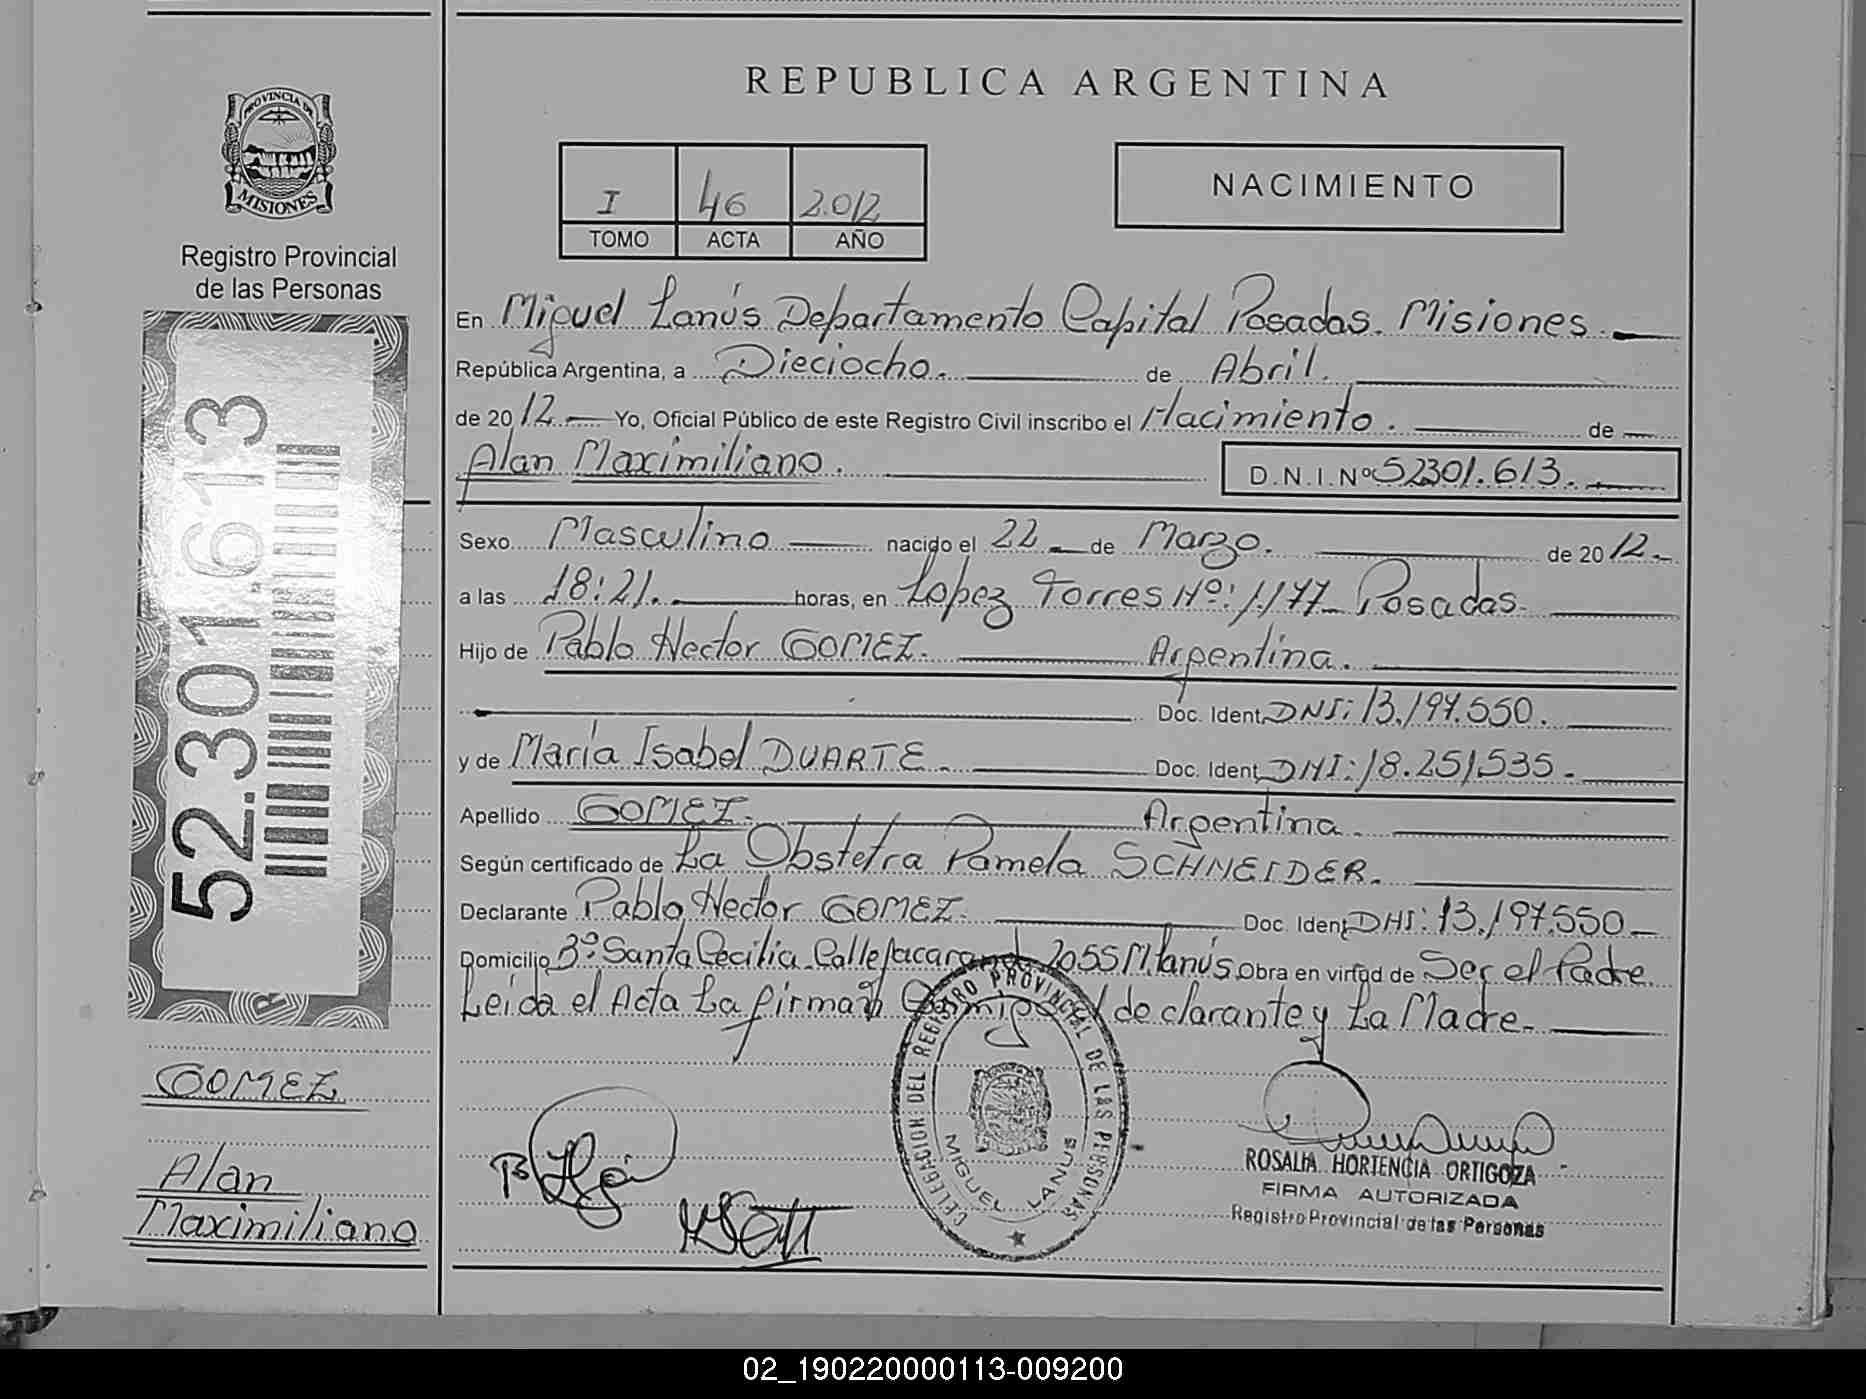 REPUBLICA ARGENTINA
PROVINCIA DE
MISIONES
Registro Provincial
de las Personas
I 46 2.012
TOMO ACTA AÑO
NACIMIENTO
En Miguel Lanús Departamento Capital Posadas. Misiones.
República Argentina, a Dieciocho. de Abril.
de 2012.— Yo, Oficial Público de este Registro Civil inscribo el Nacimiento. de
Alan Maximiliano. D.N.I.Nº 52301.613.
Sexo Masculino nacido el 22 de Marzo. de 2012.
a las 18:21. horas, en Lopez Torres Nº: 1.177 Posadas.
Hijo de Pablo Hector GOMEZ. Argentina.
Doc. Ident. DNI: 13.197.550.
y de María Isabel DUARTE. Doc. Ident. DNI: 18.251.535.
Apellido GOMEZ. Argentina.
Según certificado de La Obstetra Pamela SCHNEIDER.
Declarante Pablo Hector GOMEZ. Doc. Ident. DNI: 13.197.550
Domicilio Bº Santa Cecilia Calle Jacaranda 2055 M. Lanús Obra en virtud de Ser el Padre
Leida el Acta La firman Conmigo el declarante y La Madre.
52.301.613
GOMEZ
Alan
Maximiliano
DELEGACION DEL REGISTRO PROVINCIAL DE LAS PERSONAS
MIGUEL LANUS
ROSALIA HORTENCIA ORTIGOZA
FIRMA AUTORIZADA
Registro Provincial de las Personas
02_190220000113-009200